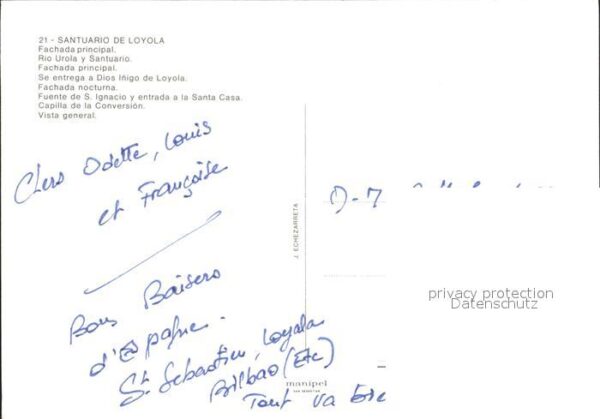 21 - SANTUARIO DE LOYOLA
Fachada principal.
Rio Urola y Santuario.
Fachada principal.
Se entrega a Dios Iñigo de Loyola.
Fachada nocturna.
Fuente de S. Ignacio y entrada a la Santa Casa.
Capilla de la Conversión.
Vista general.
Chers Odette, Louis
et Françoise
Bons Baisers
d'Espagne.
St Sebastien, Loyala
Bilbao (Etc)
Tout va
J. ECHEZARRETA
D-7
privacy protection
Datenschutz
manipel
SAN SEBASTIAN